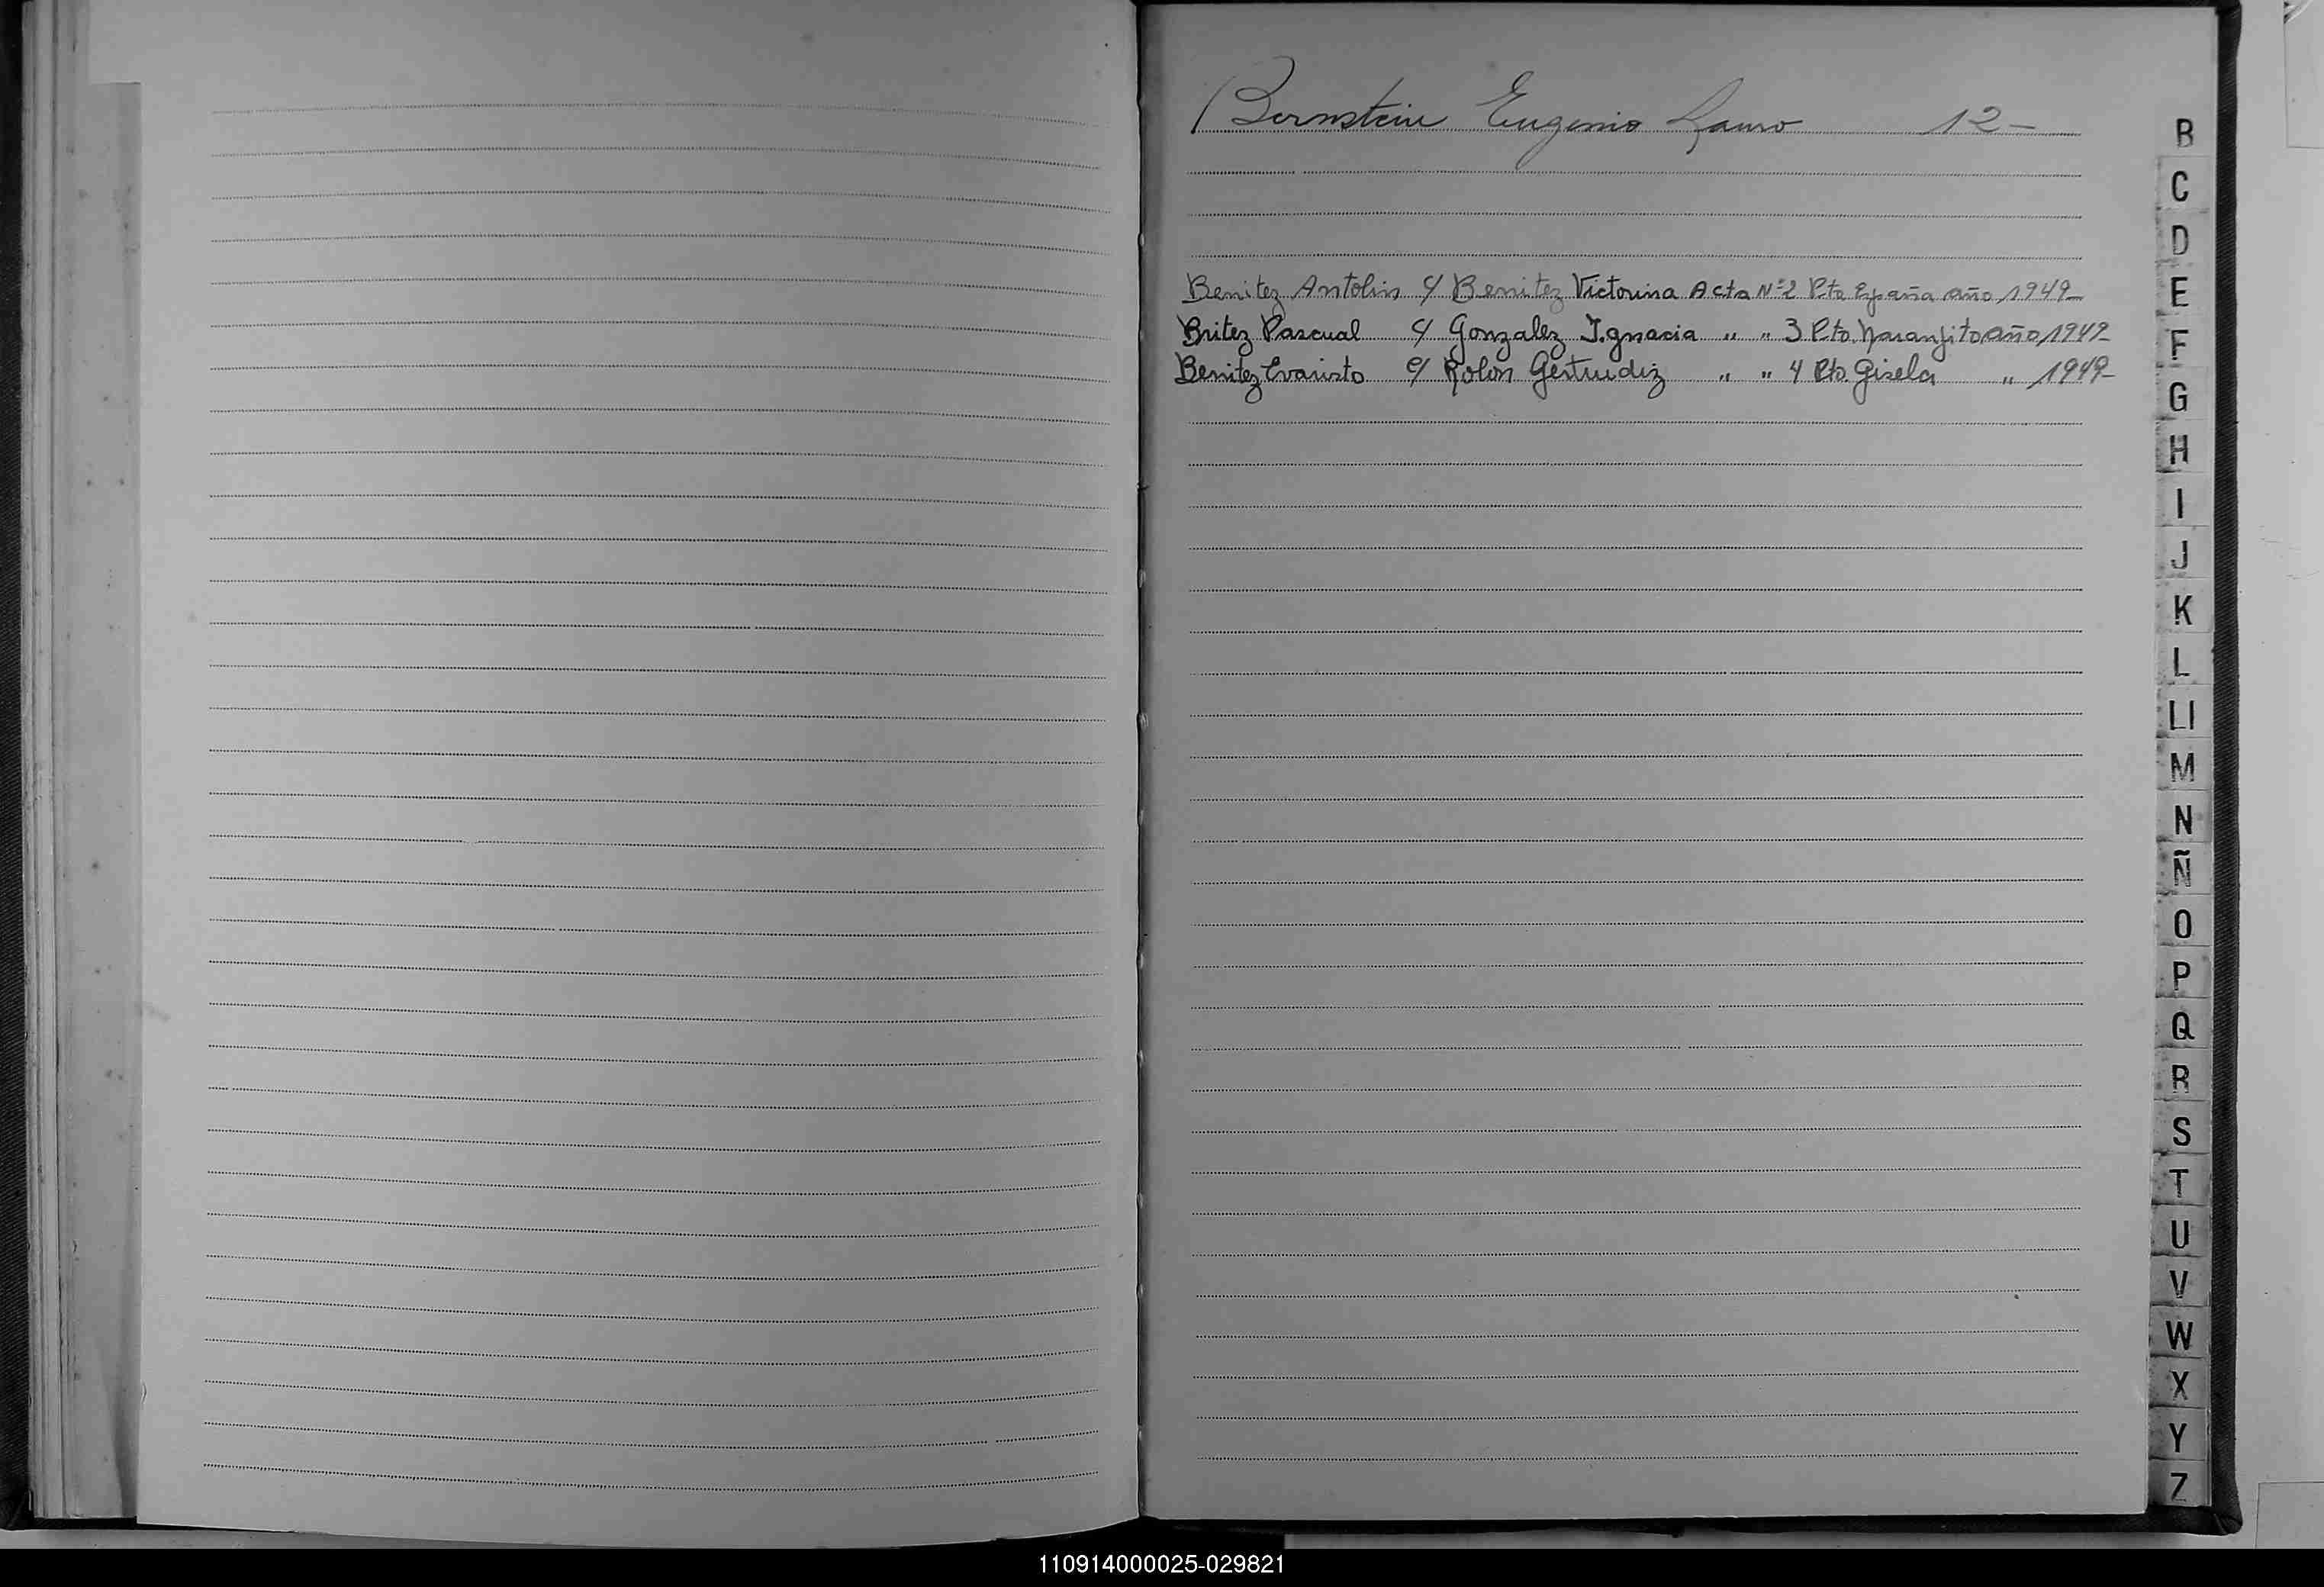 Bernstein Eugenio Lauro 12-
Benitez Antolin c/ Benitez Victorina Acta Nº 2 Pto España año 1949-
Britez Pascual c/ Gonzalez Ignacia " " 3 Pto. Naranjito año 1949-
Benitez Evaristo c/ Rolon Gertrudiz " " 4 Pto. Gisela " 1949-
B
C
D
E
F
G
H
I
J
K
L
Ll
M
N
Ñ
O
P
Q
R
S
T
U
V
W
X
Y
Z
110914000025-029821